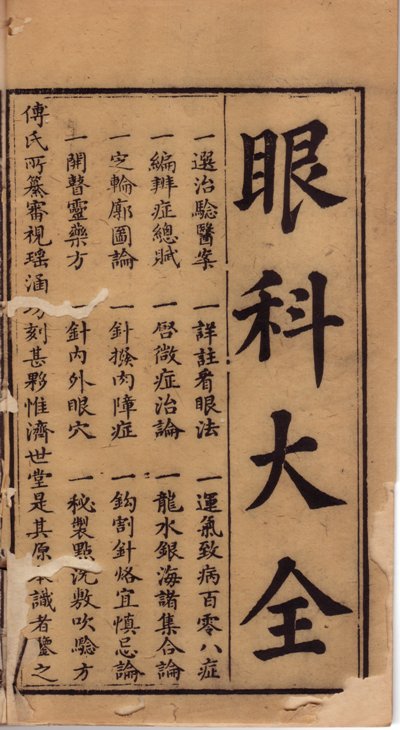 眼科大全
一選治驗醫案 一詳註看眼法 一運氣致病百零八症
一編辨症總賦 一啓微症治論 一龍水銀海諸集合論
一定輪廓圖論 一針撥內障症 一鈎割針烙宜慎忌論
一開瞽靈藥方 一針內外眼穴 一秘製點洗敷吹驗方
傅氏所纂審視瑶涵坊刻甚夥惟濟世堂是其原本識者鑒之